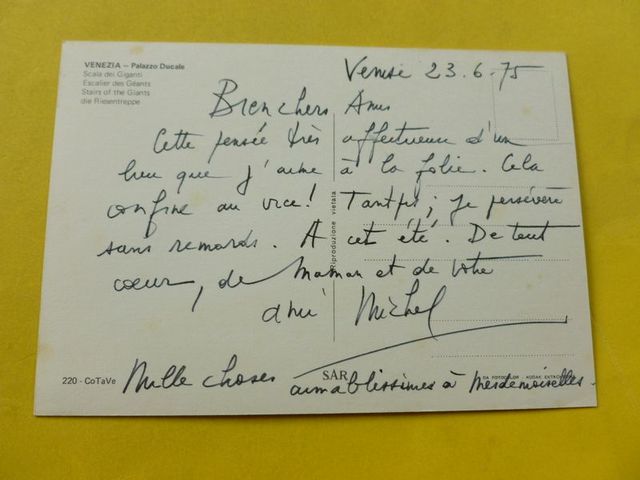 VENEZIA – Palazzo Ducale
Scala dei Giganti
Escalier des Géants
Stairs of the Giants
die Riesentreppe
Venise 23.6.75
Bien chers Amis
Cette pensée très affectueuse d'un
lieu que j'aime à la folie. Cela
confine au vice! Tant pis; je persévère
sans remords. A cet été. De tout
cœur, de Maman et de votre
ami Michel
Riproduzione vietata
220 - CoTaVe
SAR
Mille choses aimablissimes à Mesdemoiselles.